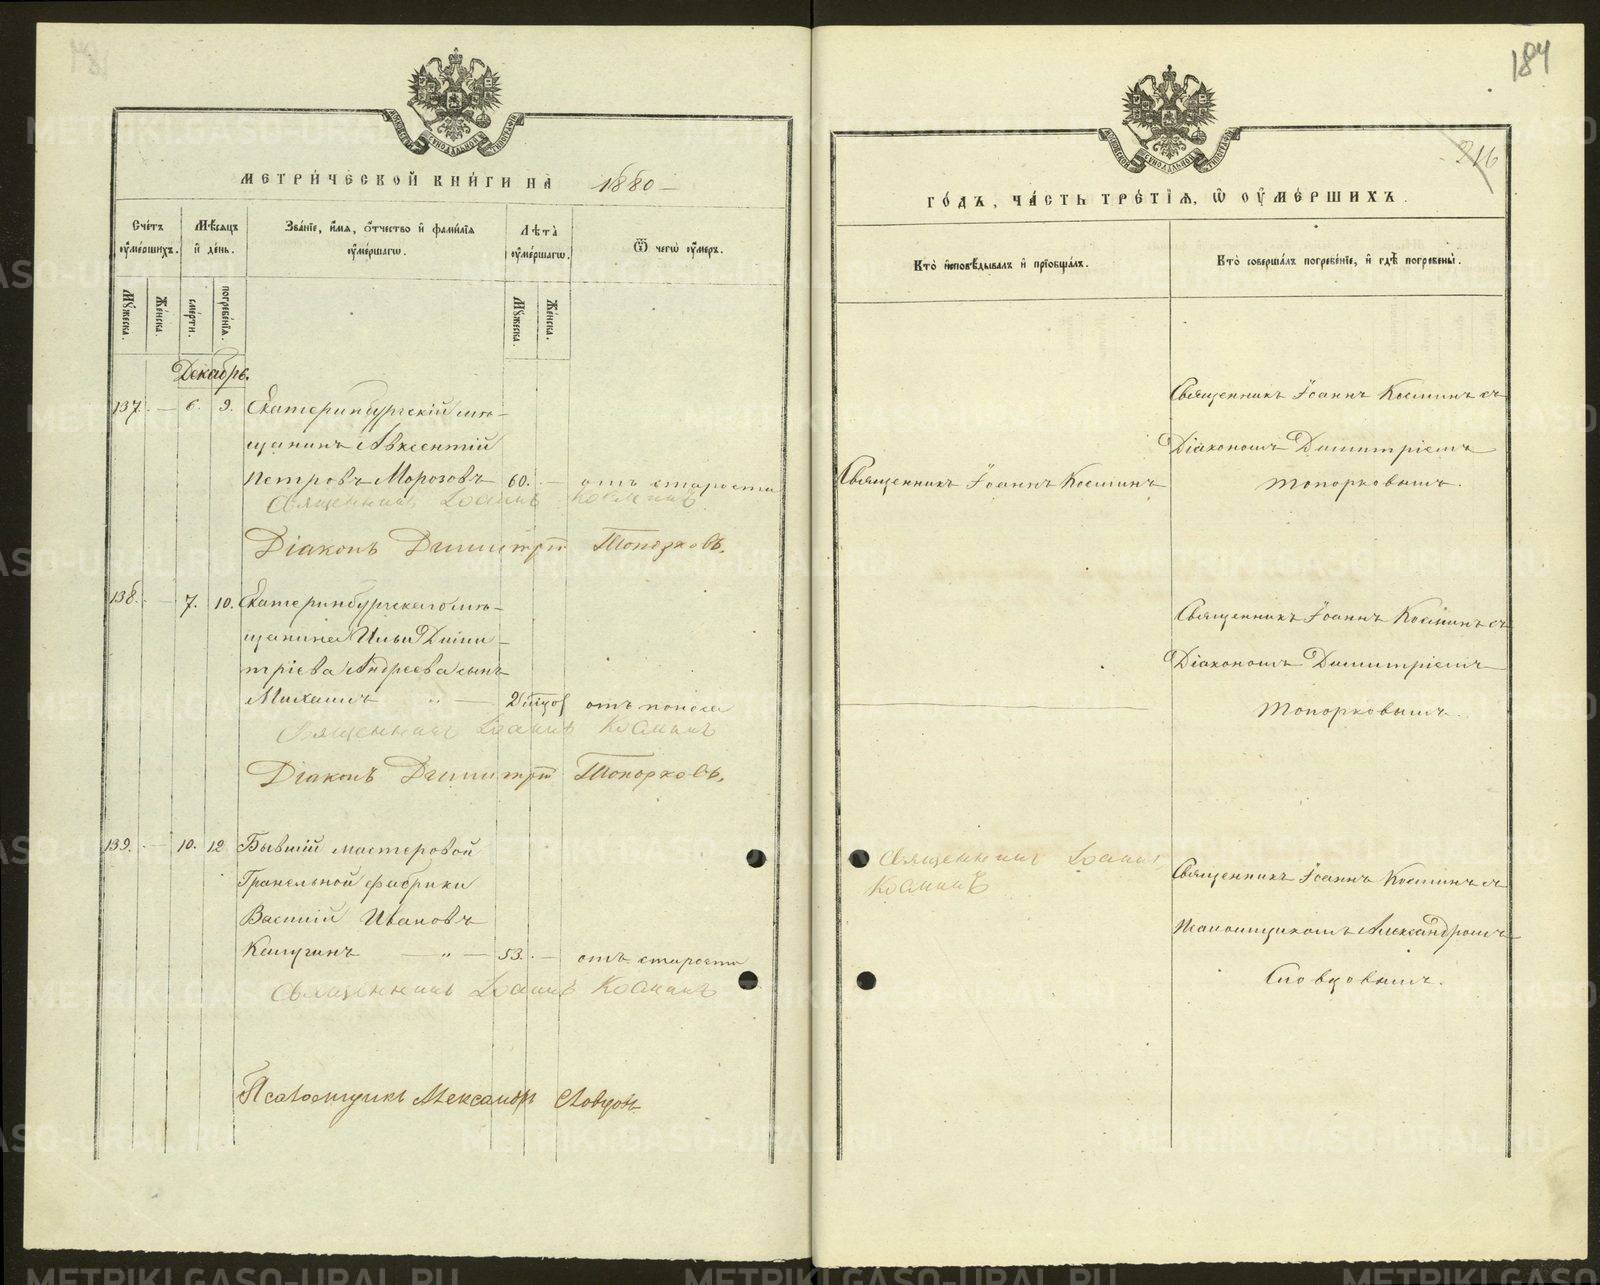 184
216
МЕТРИ́ЧЕСКОЙ КНИ́ГИ НА 1880
Сче́тъ оу҆ме́ршихъ.
Мѣ́сяцъ и҆ де́нь.
Зва́нїе, и҆́мя, ѻ҆́тчество и҆ фами́лїя оу҆ме́ршагѡ.
Лѣ́та оу҆ме́ршагѡ.
Ѿ чегѡ̀ оу҆́меръ.
Мꙋ́жеска.
Же́нска.
сме́рти.
погребе́нїя.
Мꙋ́жеска.
Же́нска.
Декабрь.
137. — 6. 9. Екатеринбургскій мѣ-
щанинъ Авксентій
Петровъ Морозовъ 60. — отъ старости
Священникъ Іоаннъ Косминъ
Діаконъ Димитрій Топорковъ.
138. — 7. 10. Екатеринбургскаго мѣ-
щанина Ильи Дими-
тріева Андреева сынъ
Михаилъ „ — отъ поноса
Священникъ Іоаннъ Косминъ
Діаконъ Димитрій Топорковъ.
139. — 10. 12 Бывшій мастеровой
Гранильной фабрики
Василій Ивановъ
Калугинъ — „ — 53. — отъ старости
Священникъ Іоаннъ Косминъ
Псаломщикъ Александръ Словцовъ
ГО́ДЪ, ЧА́СТЬ ТРЕ́ТЇЯ, Ѽ ОУ҆МЕ́РШИХЪ.
Кто̀ и҆сповѣ́дывалъ и҆ прїѡбща́лъ.
Кто̀ соверша́лъ погребе́нїе, и҆ гдѣ̀ погребены̀.
Священникъ Іоаннъ Косминъ съ
Діакономъ Димитріемъ
Священникъ Іоаннъ Косминъ
Топорковымъ.
Священникъ Іоаннъ Косминъ съ
Діакономъ Димитріемъ
Топорковымъ.
Священникъ Іоаннъ
Косминъ
Священникъ Іоаннъ Косминъ съ
Псаломщикомъ Александромъ
Словцовымъ.
METRIKI.GASO-URAL.RU